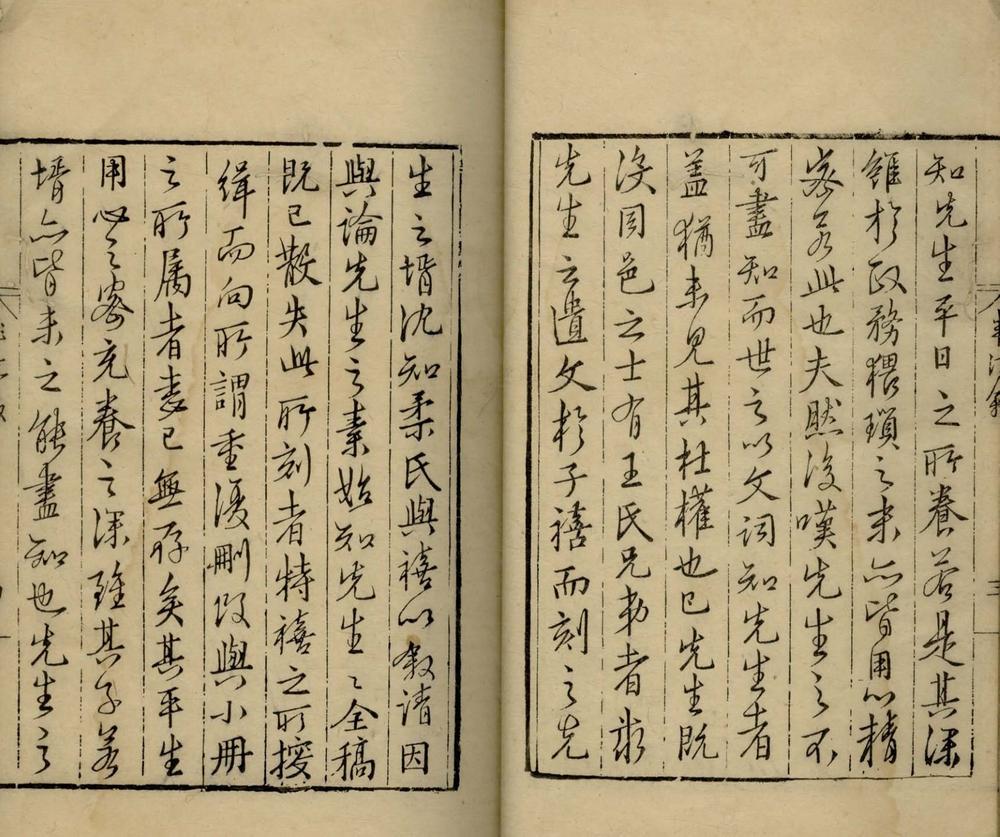 知先生平日之所養若是其深
雖於政務猥瑣之末亦皆用心精
密若此也夫然後嘆先生之不
可盡知而世之以文詞知先生者
蓋猶未見其杜權也已先生既
沒同邑之士有王氏兄弟者裒
先生之遺文於子禧而刻之先
生之壻沈知柔氏與禧以敘請因
與論先生之素始知先生之全稿
既已散失此所刻者特禧之所援
緝而向所謂重復刪改與小冊
之所屬者表已無存矣其平生
用心之密充養之深雖其子若
壻亦皆未之能盡知也先生之